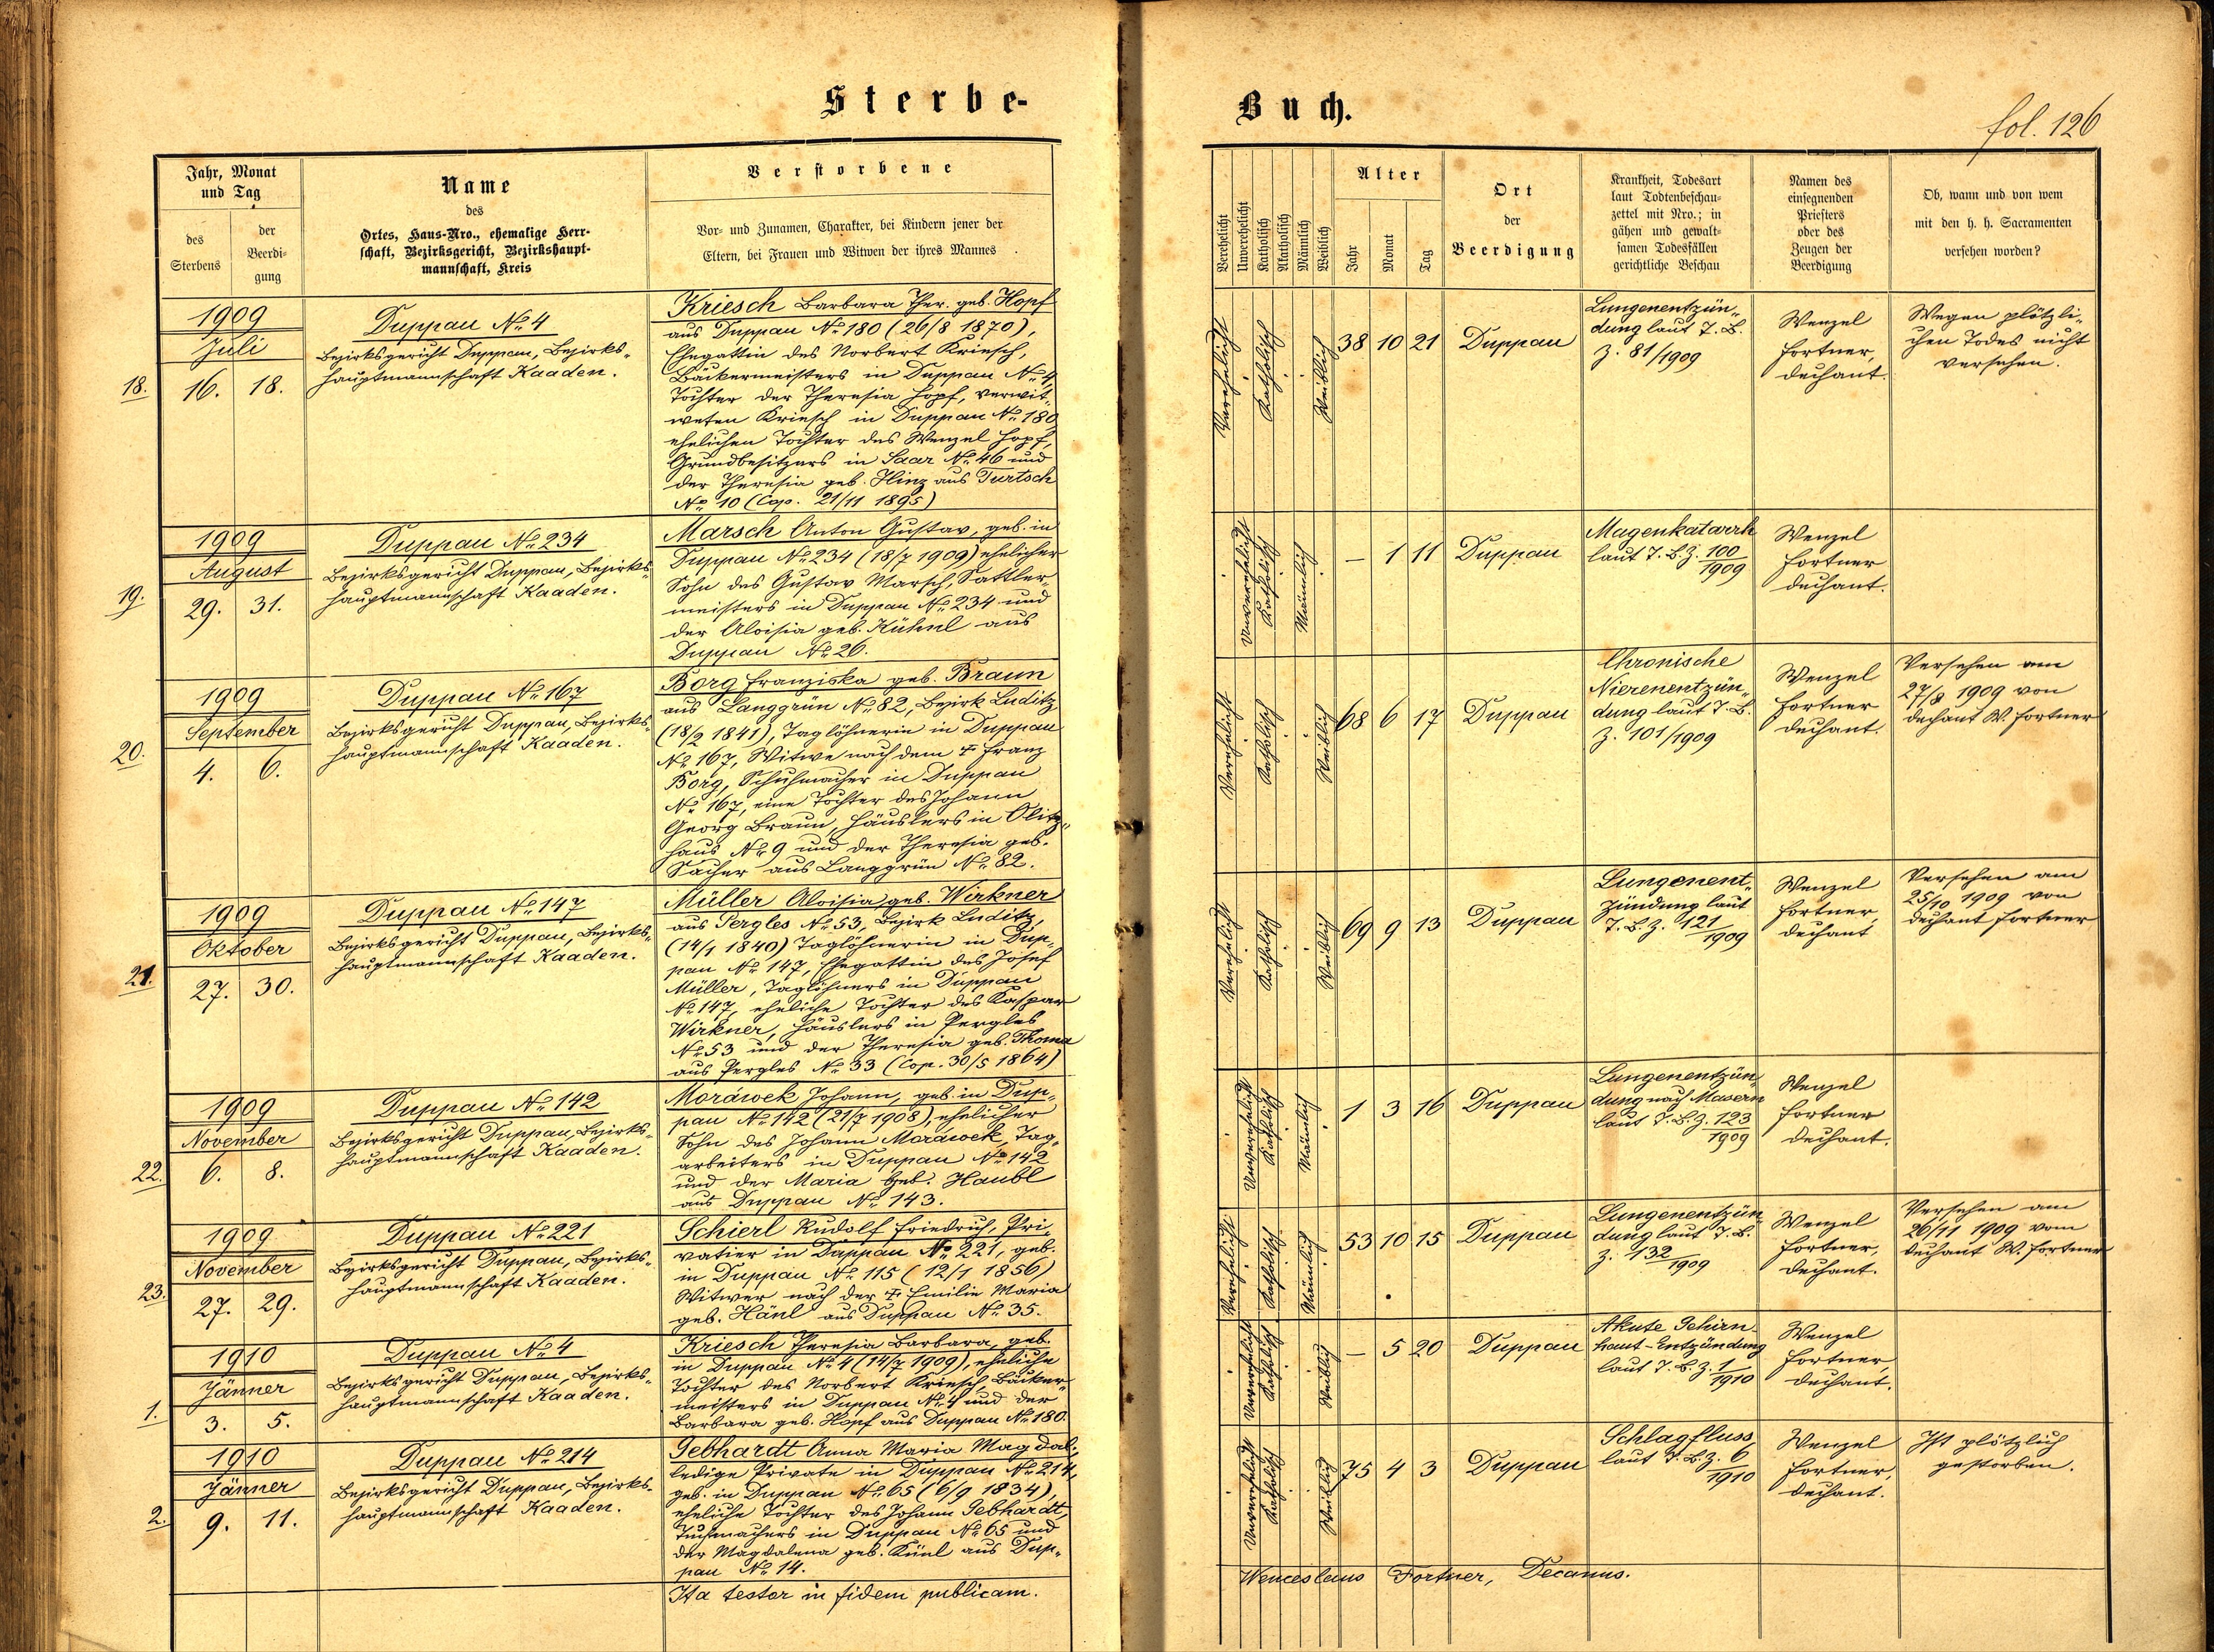 Sterbe-
Buch.
fol. 126
Jahr, Monat
und Tag
des
Sterbens
der
Beerdi-
gung
Name
des
Ortes, Haus-Nro., ehemalige Herr-
schaft, Bezirksgericht, Bezirkshaupt-
mannschaft, Kreis
Verstorbene
Vor- und Zunamen, Charakter, bei Kindern jener der
Eltern, bei Frauen und Witwen der ihres Mannes
Verehelicht
Unverehelicht
Katholisch
Akatholisch
Männlich
Weiblich
Alter
Jahr
Monat
Tag
Ort
der
Beerdigung
Krankheit, Todesart
laut Todtenbeschau-
zettel mit Nro.; in
gähen und gewalt-
samen Todesfällen
gerichtliche Beschau
Namen des
einsegnenden
Priesters
oder des
Zeugen der
Beerdigung
Ob, wann und von wem
mit den h. h. Sacramenten
versehen worden?
18.
1909
Juli
16. 18.
Duppau No 4
Bezirksgericht Duppau, Bezirks-
hauptmannschaft Kaaden.
Kriesch Barbara Ther. geb. Hopf
aus Duppau No 180 (26/8 1870),
Ehegattin des Norbert Kriesch,
Bäckermeisters in Duppau No 4,
Tochter der Theresia Hopf, verwit-
weten Kriesch in Duppau No 180
ehelichen Tochter des Wenzel Hopf,
Grundbesitzers in Saar No 46 und
der Theresia geb. Hinz aus Turtsch
No 10 (Cop. 21/11 1895)
Verehelicht
Katholisch
Weiblich
38 10 21
Duppau
Lungenentzün-
dung laut T. B.
Z. 81/1909
Wenzel
Fortner,
Dechant.
Wegen plötzli-
chen Todes nicht
versehen.
19.
1909
August
29. 31.
Duppau No 234
Bezirksgericht Duppau, Bezirks-
hauptmannschaft Kaaden.
Marsch Anton Gustav, geb. in
Duppau No 234 (18/7 1909) ehelicher
Sohn des Gustav Marsch, Sattler-
meisters in Duppau No 234 und
der Aloisia geb. Kühnl aus
Duppau No 26.
Unverehelicht
Katholisch
Männlich
— 1 11
Duppau
Magenkatarrh
laut T. B. Z. 100/1909
Wenzel
Fortner
Dechant.
20.
1909
September
4. 6.
Duppau No 167
Bezirksgericht Duppau, Bezirks-
hauptmannschaft Kaaden.
Borg Franziska geb. Braun
aus Langgrün No 82, Bezirk Luditz
(18/2 1841), Taglöhnerin in Duppau
No 167, Witwe nach dem † Franz
Borg, Schuhmacher in Duppau
No 167, eine Tochter des Johann
Georg Braun, Häuslers in Olitz-
haus No 9 und der Theresia geb.
Sacher aus Langgrün No 82.
Verehelicht
Katholisch
Weiblich
68 6 17
Duppau
Chronische
Nierenentzün-
dung laut T. B.
Z. 101/1909
Wenzel
Fortner
Dechant.
Versehen am
27/8 1909 von
Dechant W. Fortner
21.
1909
Oktober
27. 30.
Duppau No 147
Bezirksgericht Duppau, Bezirks-
hauptmannschaft Kaaden.
Müller Aloisia geb. Wirkner
aus Pergles No 53, Bezirk Luditz,
(14/1 1840) Taglöhnerin in Dup-
pau No 147, Ehegattin des Josef
Müller, Taglöhners in Duppau
No 147, eheliche Tochter des Kaspar
Wirkner, Häuslers in Pergles
No 53 und der Theresia geb. Thoma
aus Pergles No 33 (Cop. 30/5 1864)
Verehelicht
Katholisch
Weiblich
69 9 13
Duppau
Lungenent-
zündung laut
T. B. Z. 121/1909
Wenzel
Fortner,
Dechant
Versehen am
25/10 1909 von
Dechant Fortner
22.
1909
November
6. 8.
Duppau No 142
Bezirksgericht Duppau, Bezirks-
hauptmannschaft Kaaden.
Moráwek Johann, geb. in Dup-
pau No 142 (21/7 1908), ehelicher
Sohn des Johann Moráwek, Tag-
arbeiters in Duppau No 142
und der Maria geb. Haubl
aus Duppau No 143.
Unverehelicht
Katholisch
Männlich
1 3 16
Duppau
Lungenentzün-
dung nach Masern
laut T. B. Z. 123/1909
Wenzel
Fortner
Dechant.
23.
1909
November
27. 29.
Duppau No 221
Bezirksgericht Duppau, Bezirks-
hauptmannschaft Kaaden.
Schierl Rudolf Friedrich, Pri-
vatier in Duppau No 221, geb.
in Duppau No 115 (12/1 1856)
Witwer nach der † Emilie Maria
geb. Hänl aus Duppau No 35.
Verehelicht
Katholisch
Männlich
53 10 15
Duppau
Lungenentzün-
dung laut T. B.
Z. 132/1909
Wenzel
Fortner,
Dechant.
Versehen am
26/11 1909 vom
Dechant W. Fortner
1.
1910
Jänner
3. 5.
Duppau No 4
Bezirksgericht Duppau, Bezirks-
hauptmannschaft Kaaden.
Kriesch Theresia Barbara, geb.
in Duppau No 4 (14/7 1909), eheliche
Tochter des Norbert Kriesch Bäcker-
meisters in Duppau No 4 und der
Barbara geb. Hopf aus Duppau No 180.
Unverehelicht
Katholisch
Weiblich
— 5 20
Duppau
Akute Gehirn-
haut-Entzündung
laut T. B. Z. 1/1910
Wenzel
Fortner,
Dechant.
2.
1910
Jänner
9. 11.
Duppau No 214
Bezirksgericht Duppau, Bezirks-
hauptmannschaft Kaaden.
Gebhardt Anna Maria Magdal.,
ledige Private in Duppau No 214,
geb. in Duppau No 65 (6/9 1834),
eheliche Tochter des Johann Gebhardt,
Tuchmachers in Duppau No 65 und
der Magdalena geb. Künl aus Dup-
pau No 14.
Unverehelicht
Katholisch
Weiblich
75 4 3
Duppau
Schlagfluss,
laut T. B. Z. 6/1910
Wenzel
Fortner,
Dechant.
Ist plötzlich
gestorben.
Ita testor in fidem publicam.
Wenceslaus Fortner, Decanus.